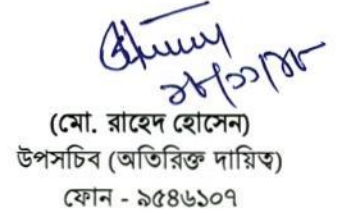 ২৮/১১/১৮
(মো. রাহেদ হোসেন)
উপসচিব (অতিরিক্ত দায়িত্ব)
ফোন - ৯৫৪৬১০৭